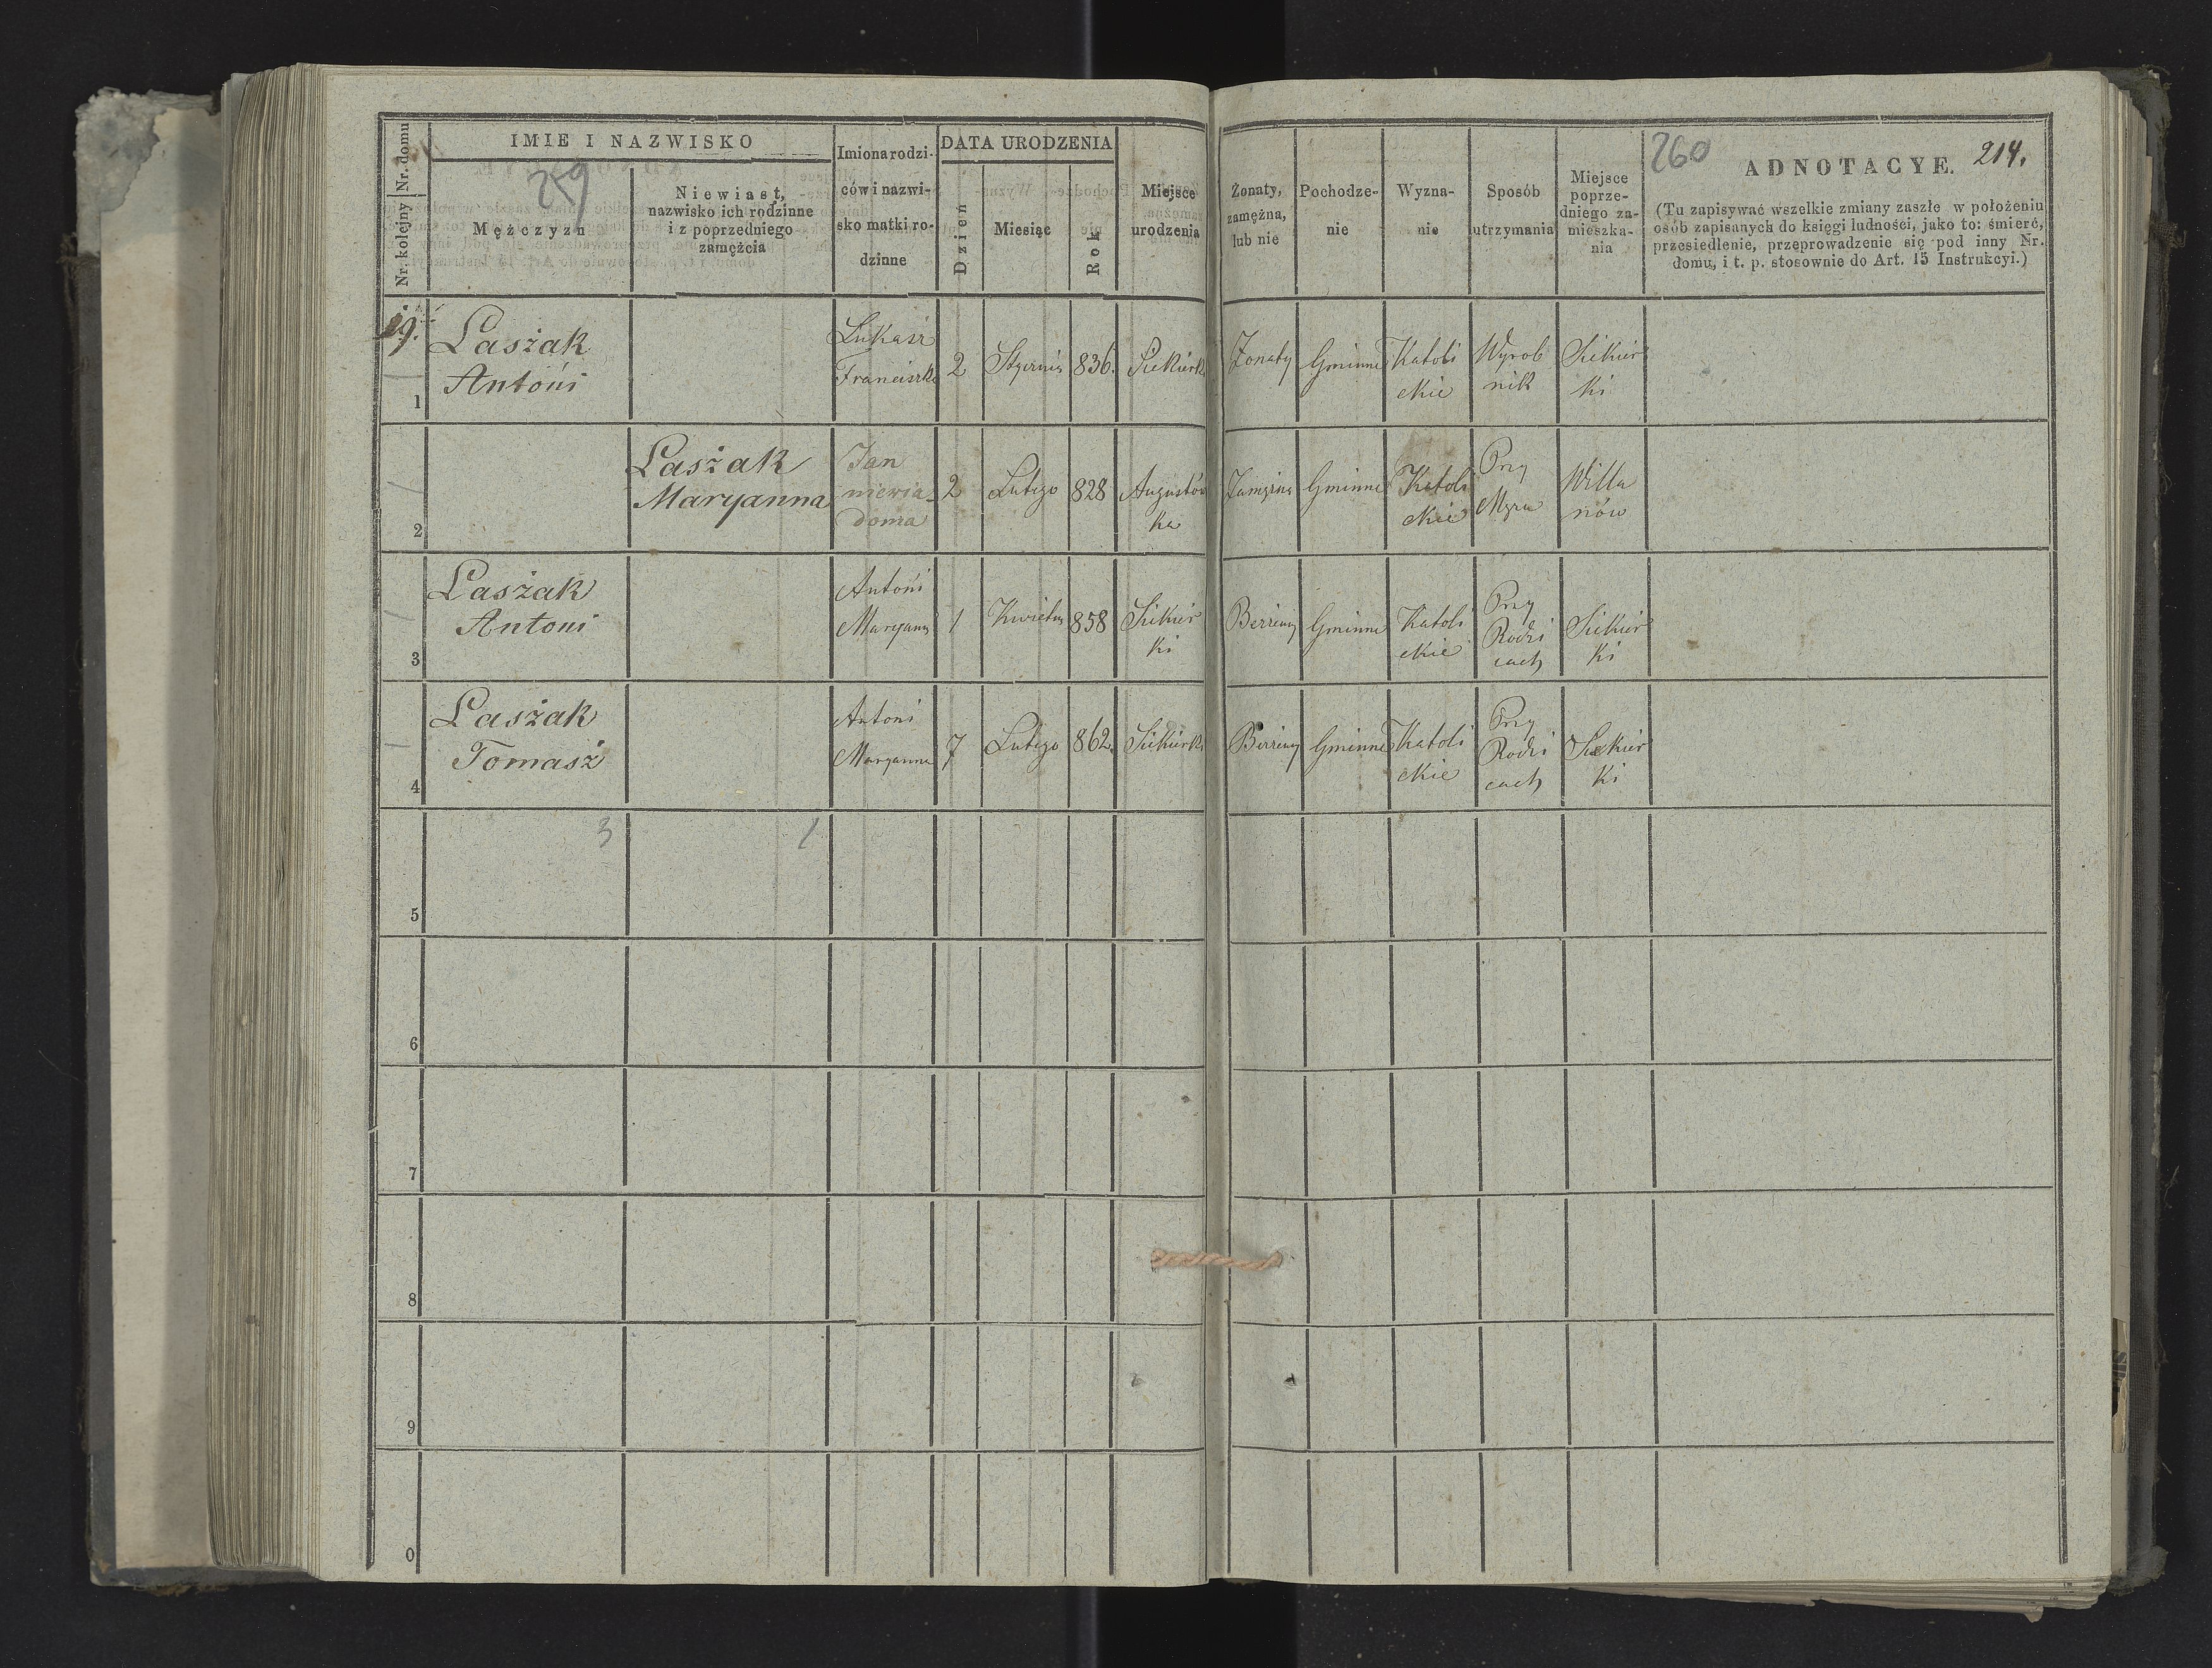 Nr. kolejny | Nr. domu
IMIE I NAZWISKO
259
Mężczyzn
Niewiast,
nazwisko ich rodzinne
i z poprzedniego
zamężcia
Imiona rodzi-
ców i nazwi-
sko matki ro-
dzinne
DATA URODZENIA
Dzień
Miesiąc
Rok
Miejsce
urodzenia
Żonaty,
zamężna,
lub nie
Pochodze-
nie
Wyzna-
nie
Sposób
utrzymania
Miejsce
poprze-
dniego za-
mieszka-
nia
260
ADNOTACYE.
214.
(Tu zapisywać wszelkie zmiany zaszłe w położeniu
osób zapisanych do księgi ludności, jako to: śmierć,
przesiedlenie, przeprowadzenie się pod inny Nr.
domu, i t. p. stosownie do Art. 15 Instrukcyi.)
19.
1
Laszak
Antoni
Łukasz
Franciszka
2
Stycznia
836.
Siekierki
Żonaty
Gminne
Katoli
ckie
Wyrob
nik
Siekier
ki
2
Laszak
Maryanna
Jan
niewia-
doma
2
Lutego
828
Augustów
ka
Zamężna
Gminne
Katoli
ckie
Przy
Mężu
Willa
nów
3
Laszak
Antoni
Antoni
Maryanna
1
Kwietnia
858
Siekier
ki
Bezżenny
Gminne
Katoli
ckie
Przy
Rodzi
cach
Siekier
ki
4
Laszak
Tomasz
Antoni
Maryanna
7
Lutego
862
Siekierki
Bezżenny
Gminne
Katoli
ckie
Przy
Rodzi
cach
Siekier
ki
3
1
5
6
7
8
9
0